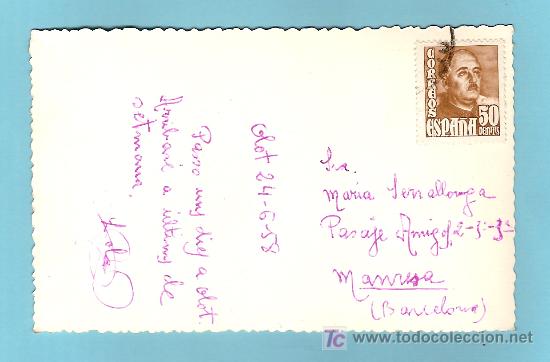 Olot 24-6-58
Passo uns dies a Olot.
Arribaré a últims de
setmana.
Lola
CORREOS
ESPAÑA
50
CENTS
Sra.
Maria Serrallonga
Pasaje Amigó, 2-3º-3ª
Manresa
(Barcelona)
todocoleccion
www.todocoleccion.net